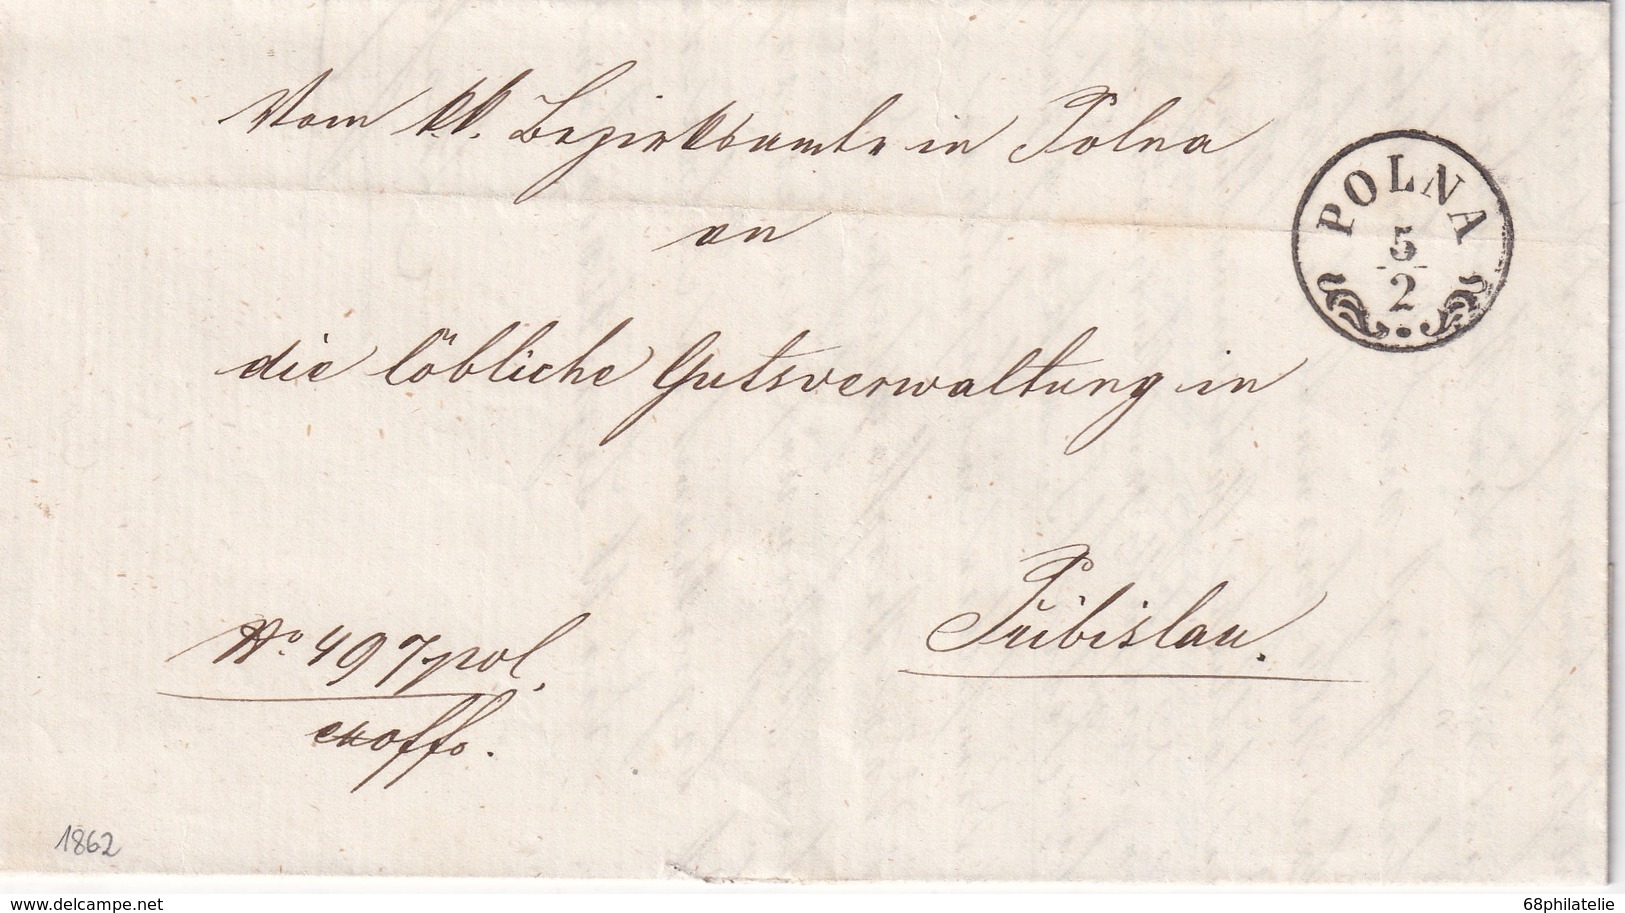 Vom kk. Bezirksamte in Polna
POLNA
5
2
an
die löbliche Gutsverwaltung in
Přibislau.
No. 497 pol.
exoffo.
1862
delcampe.net
68philatelie